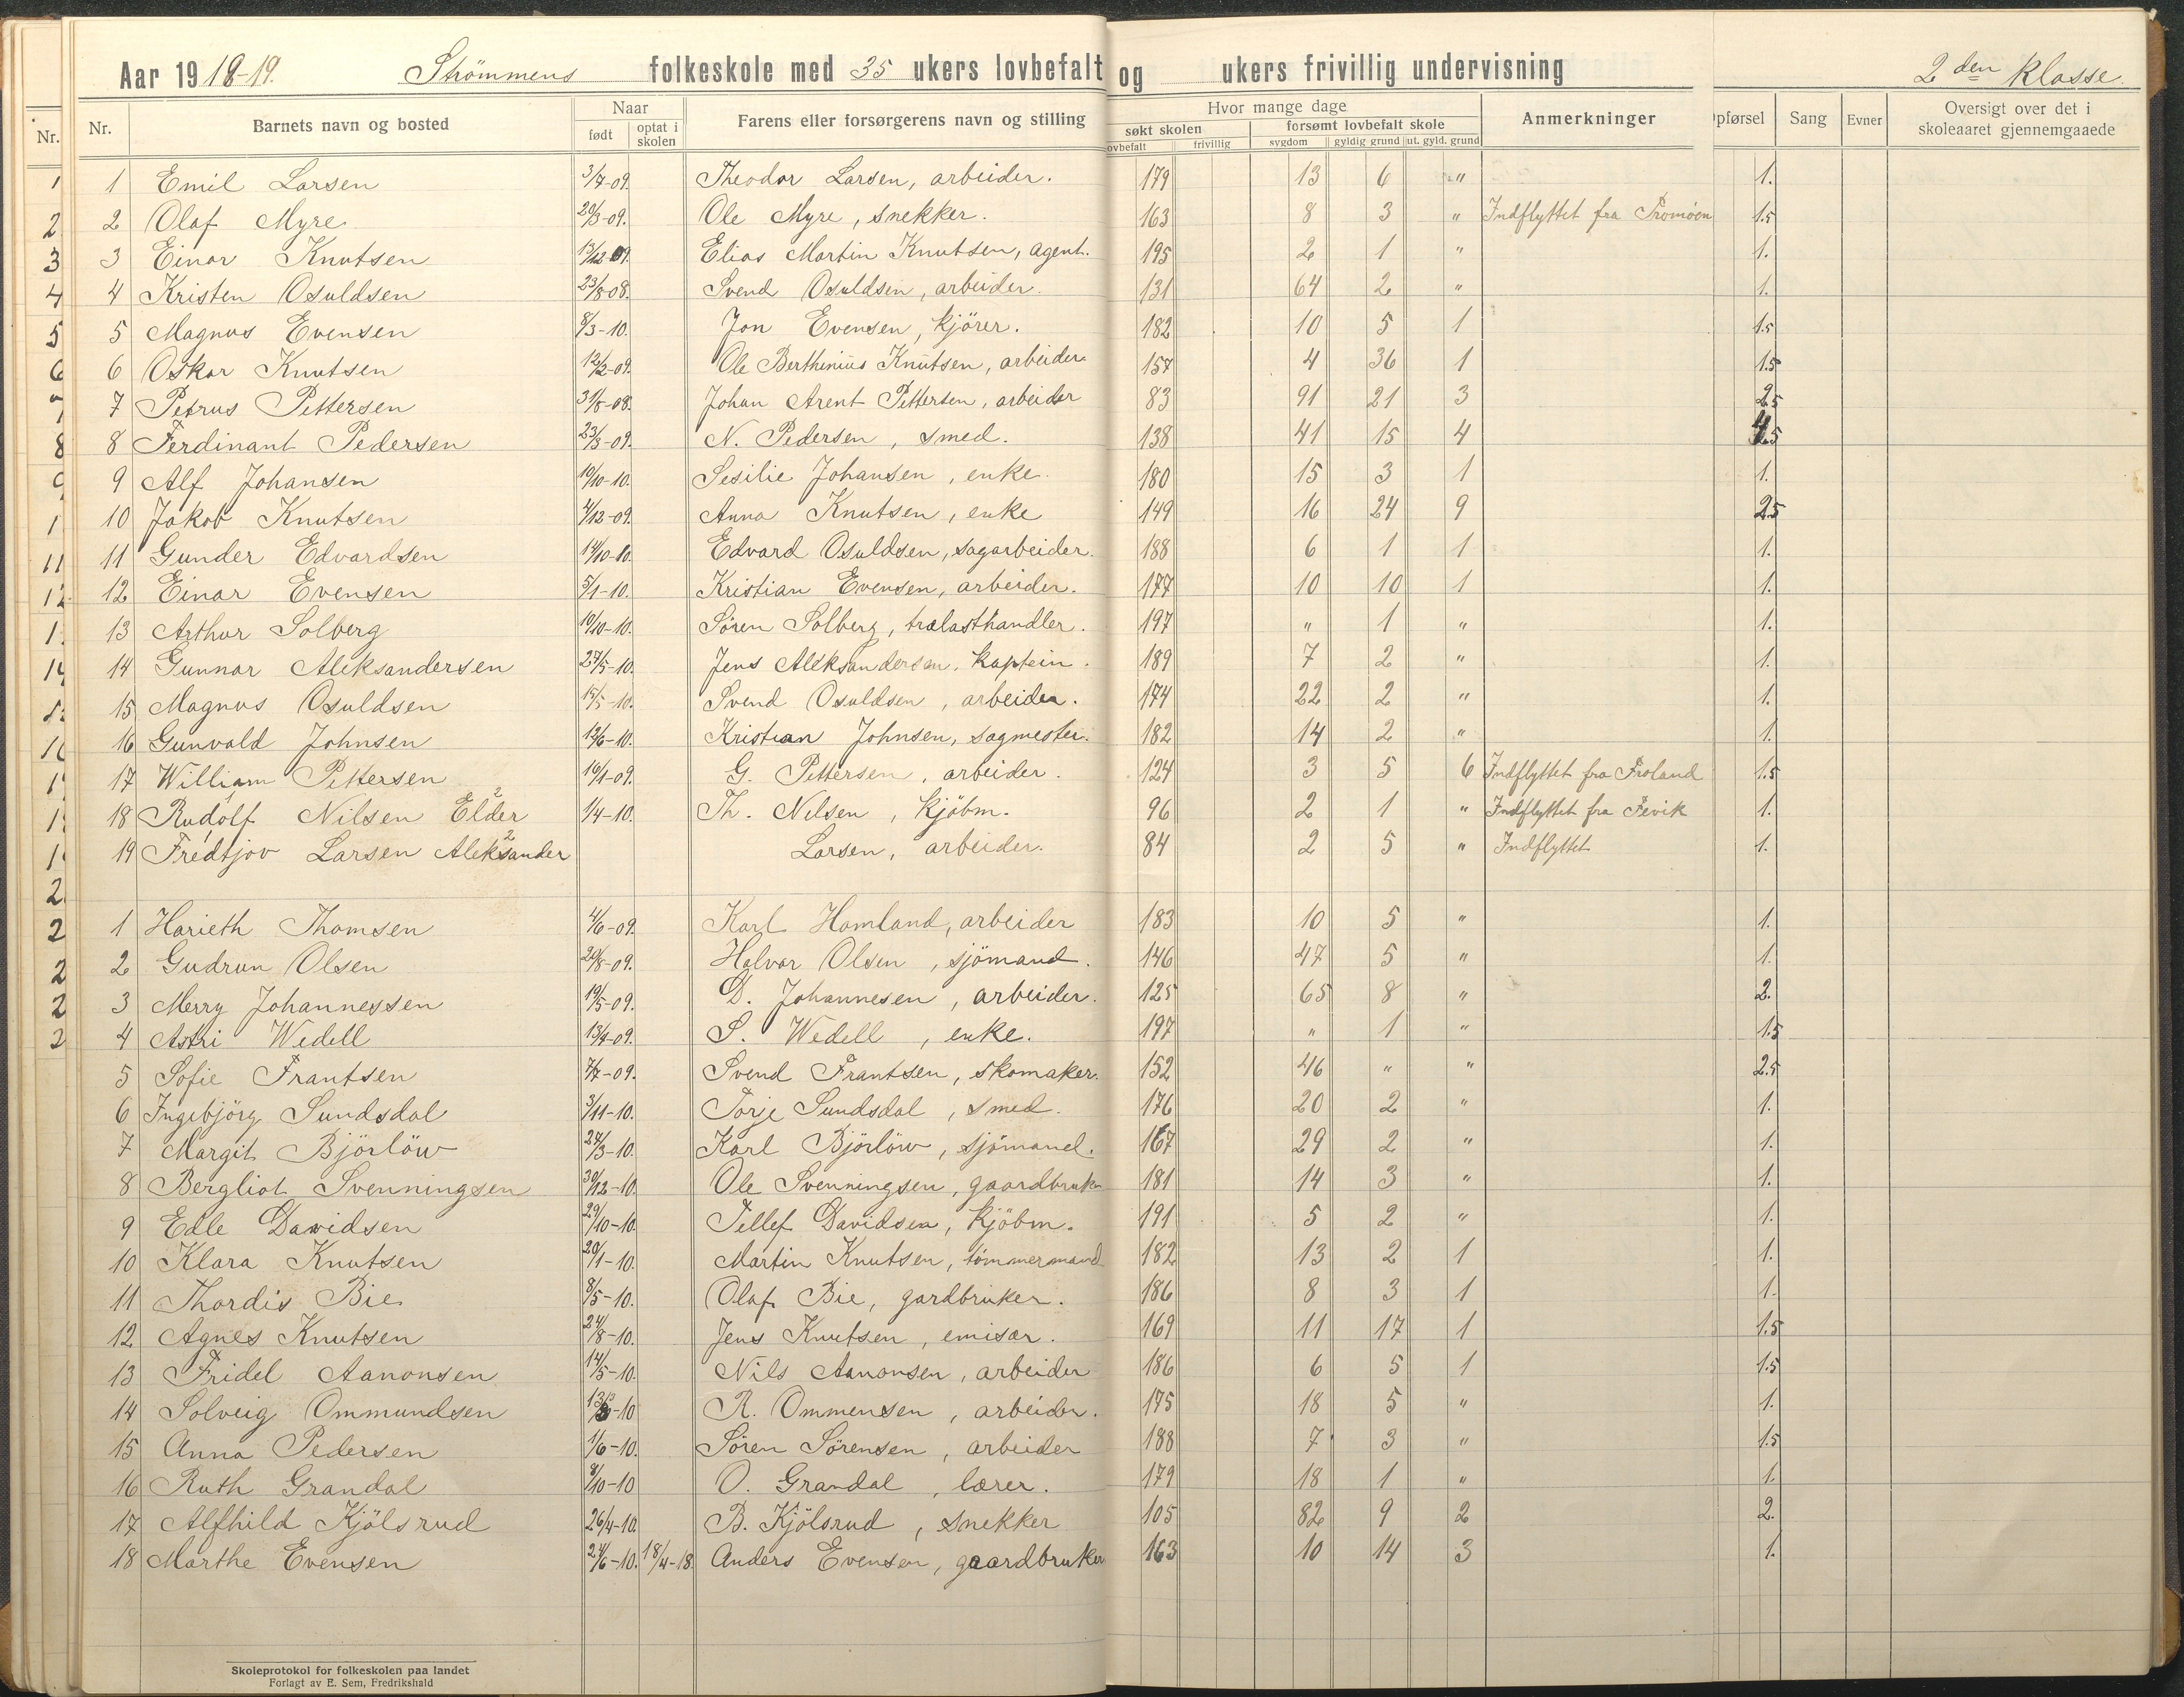 Aar 1918-19. Strömmens folkeskole med 35 ukers lovbefalt og ukers frivillig undervisning 2 den klasse.
Nr. Nr. Barnets navn og bosted Naar født optat i skolen Farens eller forsørgerens navn og stilling Hvor mange dage søkt skolen ovbefalt frivillig forsømt lovbefalt skole sygdom gyldig grund ut. gyld. grund Anmerkninger pførsel Sang Evner Oversigt over det i skoleaaret gjennemgaaede
1 1 Emil Larsen 3/7-09. Theodor Larsen, arbeider. 179 13 6 " 1.
2 2 Olaf Myre 20/3-09. Ole Myre, snekker. 163 8 3 " Indflyttet fra Tromöen 1.5
3 3 Einar Knutsen 13/12-09. Elias Martin Knutsen, agent. 195 2 1 " 1.
4 4 Kristen Osuldsen 23/8-08. Svend Osuldsen, arbeider. 131 64 2 " 1.
5 5 Magnus Evensen 8/3-10. Jon Evensen, kjörer. 182 10 5 1 1.5
6 6 Oskar Knutsen 12/2-09. Ole Berthinius Knutsen, arbeider. 157 4 36 1 1.5
7 7 Petrus Pettersen 31/8-08. Johan Arent Pettersen, arbeider 83 91 21 3 2.5
8 8 Ferdinant Pedersen 23/3-09. N. Pedersen, smed. 138 41 15 4
9 9 Alf Johansen 10/10-10. Sesilie Johansen, enke. 180 15 3 1 1.
1 10 Jakob Knutsen 4/12-09. Anna Knutsen, enke 149 16 24 9 2.5
11 11 Gunder Edvardsen 14/10-10. Edvard Osuldsen, sagarbeider. 188 6 1 1 1.
12 12 Einar Evensen 5/1-10. Kristian Evensen, arbeider. 177 10 10 1 1.
1 13 Arthur Solberg 10/10-10. Sören Solberg, trælasthandler. 197 " 1 " 1.
14 14 Gunnar Aleksandersen 27/5-10. Jens Aleksandersen. kaptein. 189 7 2 " 1.
15 Magnus Osuldsen 15/5-10. Svend Osuldsen, arbeider. 174 22 2 " 1.
16 Gunvald Johnsen 12/6-10. Kristian Johnsen, sagmester. 182 14 2 " 1.
1 17 William Pettersen 16/1-09. G. Pettersen, arbeider. 124 3 5 6 Indflyttet fra Froland 1.5
1 18 Rudolf Nilsen Elder 1/4-10. Th. Nilsen, kjöbm. 96 2 1 " Indflyttet fra Fevik 1.
1 19 Fredtjov Larsen Aleksander Larsen, arbeider. 84 2 5 " Indflyttet 1.
2
2 1 Harieth Thomsen 4/6-09. Karl Homland, arbeider 183 10 5 " 1.
2 2 Gudrun Olsen 20/8-09. Halvor Olsen, sjömand. 146 47 5 " 1.
2 3 Merry Johannessen 19/5-09. D. Johannesen, arbeider. 125 65 8 " 2.
2 4 Astri Wedell 13/9-09. S. Wedell, enke. 197 " 1 " 1.5
5 Sofie Frantsen 7/7-09. Svend Frantsen, skomaker. 152 46 " " 2.5
6 Ingebjörg Sundsdal 3/11-10. Torje Sundsdal, smed. 176 20 2 " 1.
7 Margit Björlöw 24/3-10. Karl Björlöw, sjömand. 167 29 2 " 1.
8 Bergliot Svenningsen 30/12-10. Ole Svenningsen, gaardbruker 181 14 3 " 1.
9 Edle Davidsen 29/10-10. Tellef Davidsen, kjöbm. 191 5 2 " 1.
10 Klara Knutsen 20/1-10. Martin Knutsen, tömmermand 182 13 2 1 1.
11 Thordis Bie 8/5-10. Olaf Bie, gardbruker. 186 8 3 1 1.
12 Agnes Knutsen 24/8-10. Jens Knutsen, emisær. 169 11 17 1 1.5
13 Fridel Aanonsen 14/5-10. Nils Aanonsen, arbeider 186 6 5 1 1.5
14 Solveig Ommundsen R. Ommensen, arbeider. 175 18 5 " 1.
15 Anna Pedersen 1/6-10. Sören Sörensen, arbeider 188 7 3 " 1.5
16 Ruth Grandal 8/10-10 O. Grandal, lærer. 179 18 1 " 1.
17 Alfhild Kjölsrud 26/4-10. B. Kjölsrud, snekker 105 82 9 2 2.
18 Marthe Evensen 24/6-10. 18/4-18. Anders Evensen, gaardbruker 163 10 14 3 1.
Skoleprotokol for folkeskolen paa landet
Forlagt av E. Sem, Fredrikshald